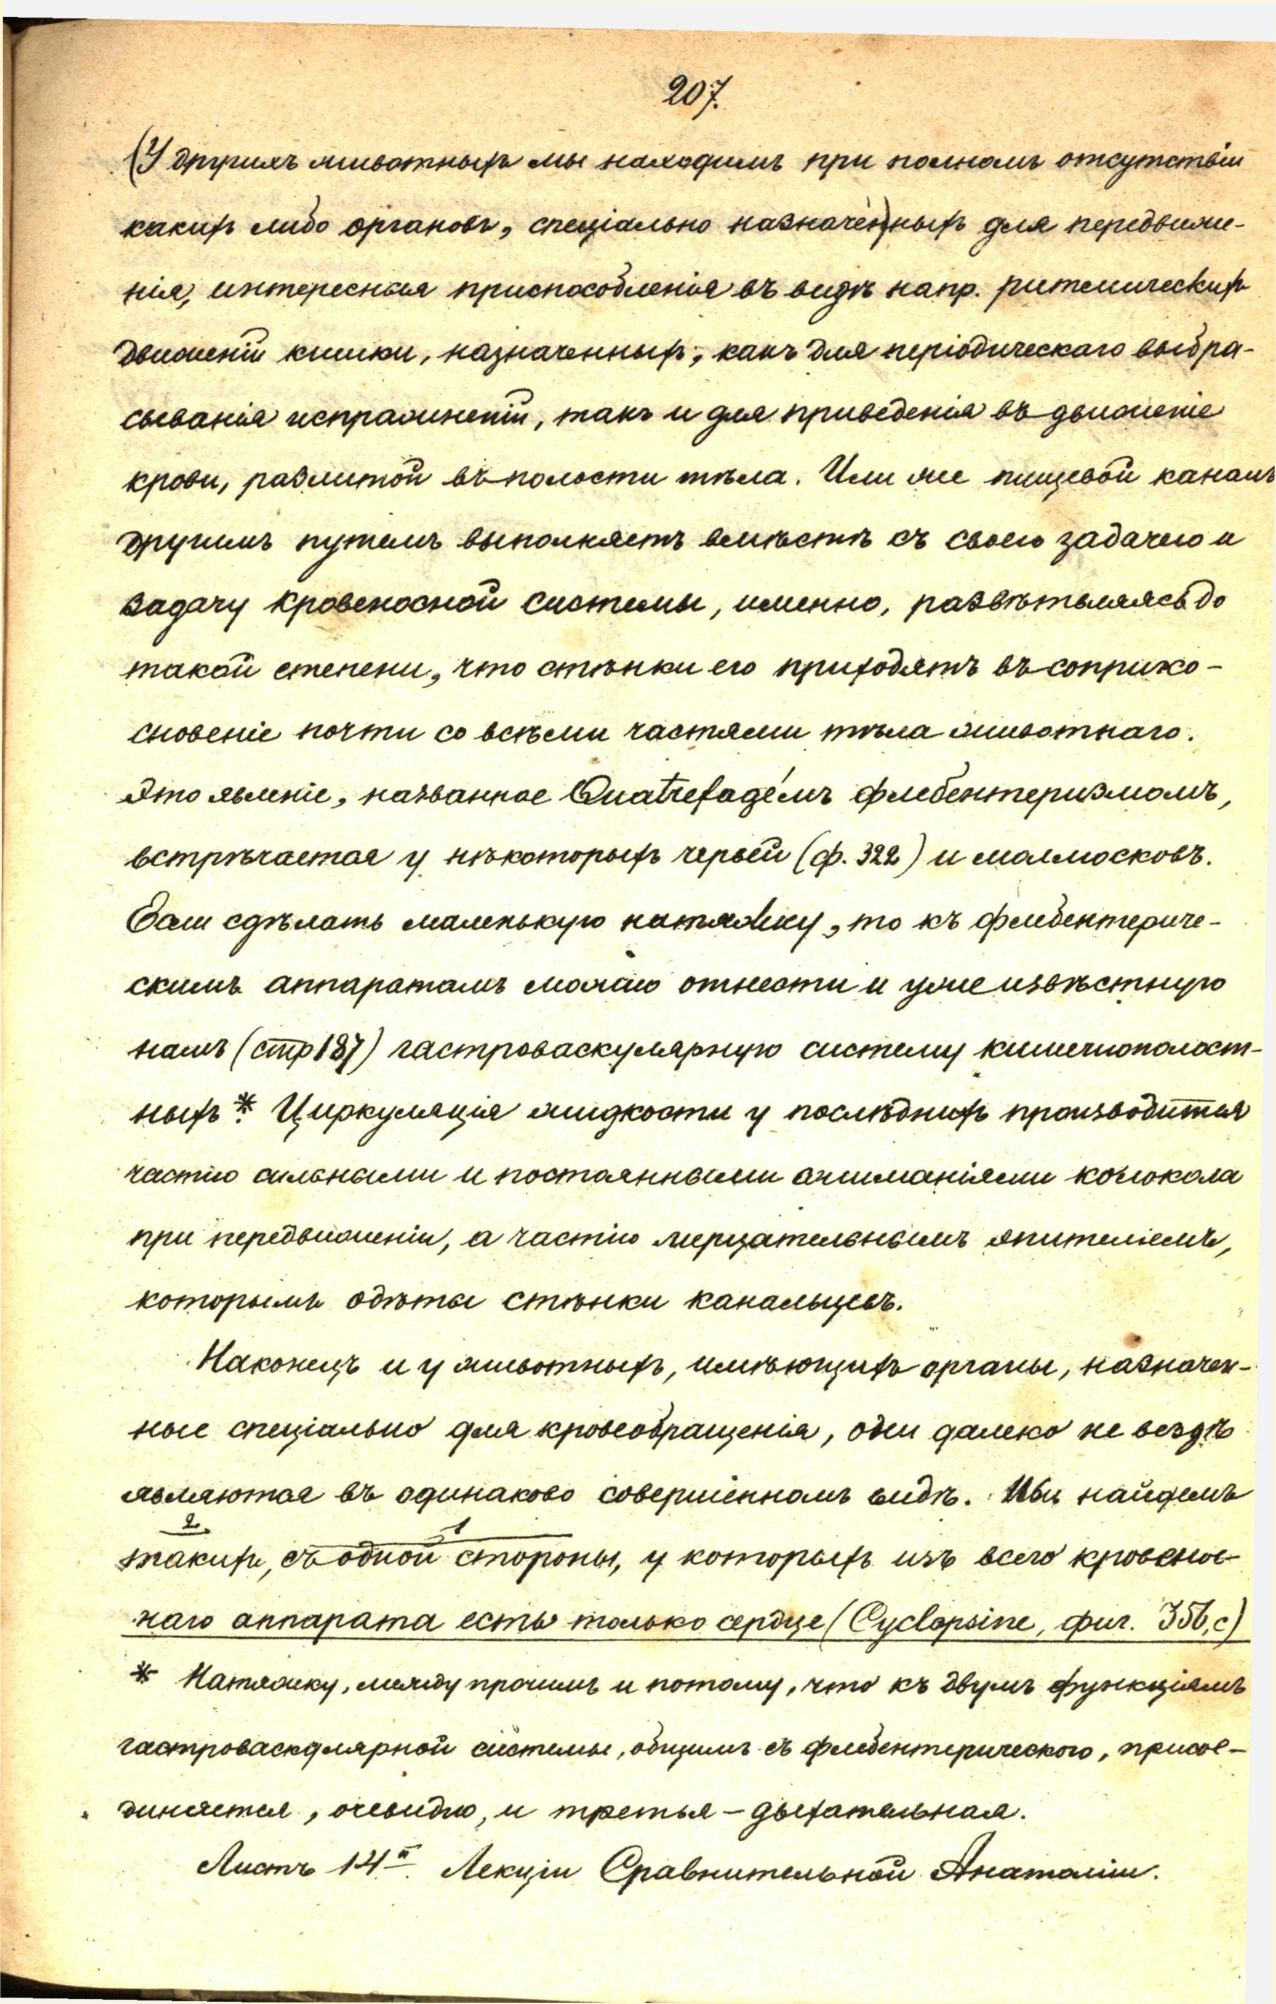 207.
(У другихъ животныхъ мы находимъ при полномъ отсутствіи
какихъ либо органовъ, спеціально назначен)ныхъ для передвиже-
нія, интересныя приспособленія въ видѣ напр. ритмическихъ
движеній кишки, назначенныхъ, какъ для періодическаго выбра-
сыванія испражненій, такъ и для приведенія въ движеніе
крови, разлитой въ полости тѣла. Или же пищевой каналъ
другимъ путемъ выполняетъ вмѣстѣ съ своею задачею и
задачу кровеносной системы, именно, развѣтвляясь до
такой степени, что стѣнки его приходятъ въ соприко-
сновеніе почти со всѣми частями тѣла животнаго.
Это явленіе, названное Quatrefagе́мъ флебентеризмомъ,
встрѣчается у нѣкоторыхъ червей (ф. 322) и моллюсковъ.
Если сдѣлать маленькую натяжку, то къ флебентериче-
скимъ аппаратамъ можно отнести и уже извѣстную
намъ (стр 187) гастроваскулярную систему кишечнополост-
ныхъ.* Циркуляція жидкости у послѣднихъ производится
частію сильными и постоянными сжиманіями колокола
при передвиженіи, а частію мерцательнымъ эпителіемъ,
которымъ одѣты стѣнки канальцевъ.
Наконецъ и у животныхъ, имѣющихъ органы, назначен-
ные спеціально для кровеобращенія, они далеко не вездѣ
являются въ одинаково совершенномъ видѣ. Мы найдемъ
2. 1
такихъ, съ одной стороны, у которыхъ изъ всего кровенос-
наго аппарата есть только сердце (Cyclopsine, фиг. 356, c)
* Натяжку, между прочимъ и потому, что къ двумъ функціямъ
гастроваскулярной системы, общимъ съ флебентерическою, присое-
диняется, очевидно, и третья – дыхательная.
Листъ 14й. Лекціи Сравнительной Анатоміи.